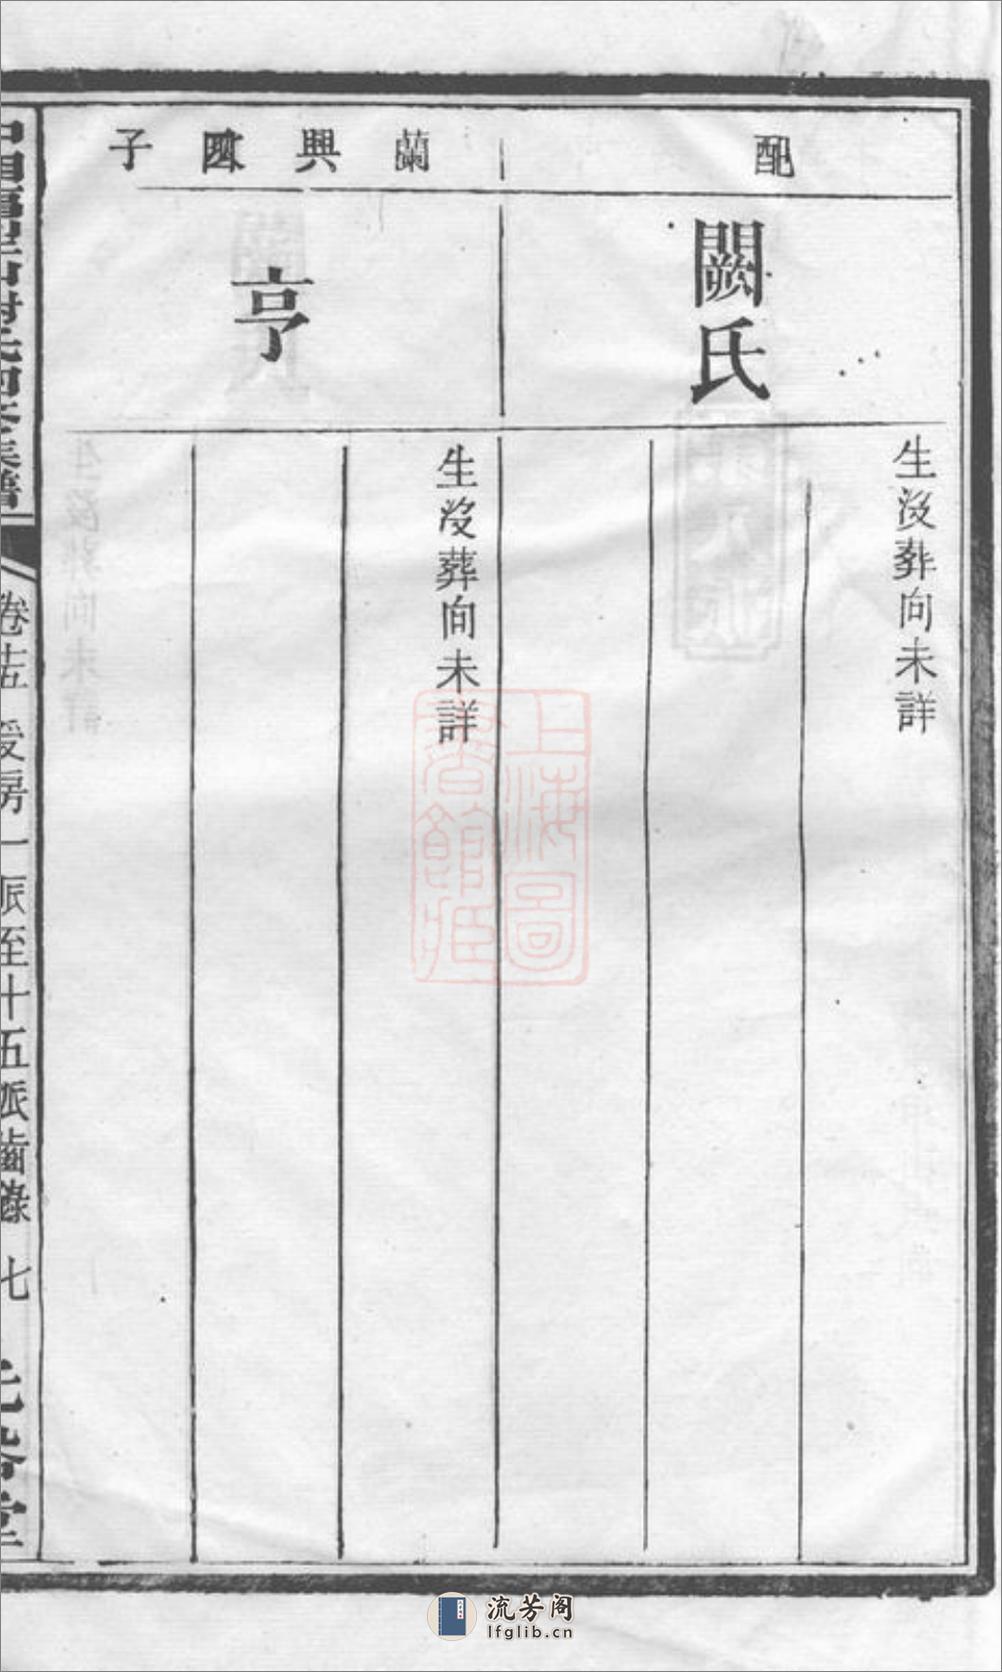 配
闕氏
生没葬向未詳
蘭興子
亨
生没葬向未詳
房一派至十五派齒錄 七
堂
上海圖書館藏
流芳阁
lfglib.cn